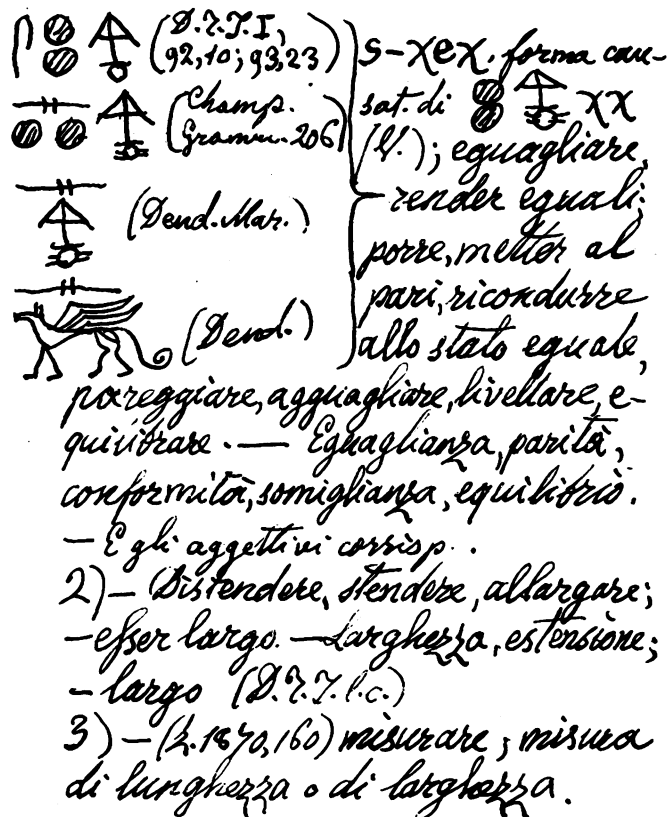 (D.T.T.I, 92,10; 93,23) s-χeχ. forma cau-
(Champ. Gramm. 206) sat. di χχ
(V.); eguagliare,
(Dend. Mar.) render eguali;
porre, metter al
pari, ricondurre
(Dend.) allo stato eguale,
pareggiare, agguagliare, livellare, e-
quilibrare. — Eguaglianza, parità,
conformità, somiglianza, equilibrio.
— E gli aggettivi corrisp..
2) — Distendere, stendere, allargare;
— esser largo. — Larghezza, estensione;
— largo (D.T.T. l.c.)
3) — (Z. 1870, 160) misurare; misura
di lunghezza o di larghezza.